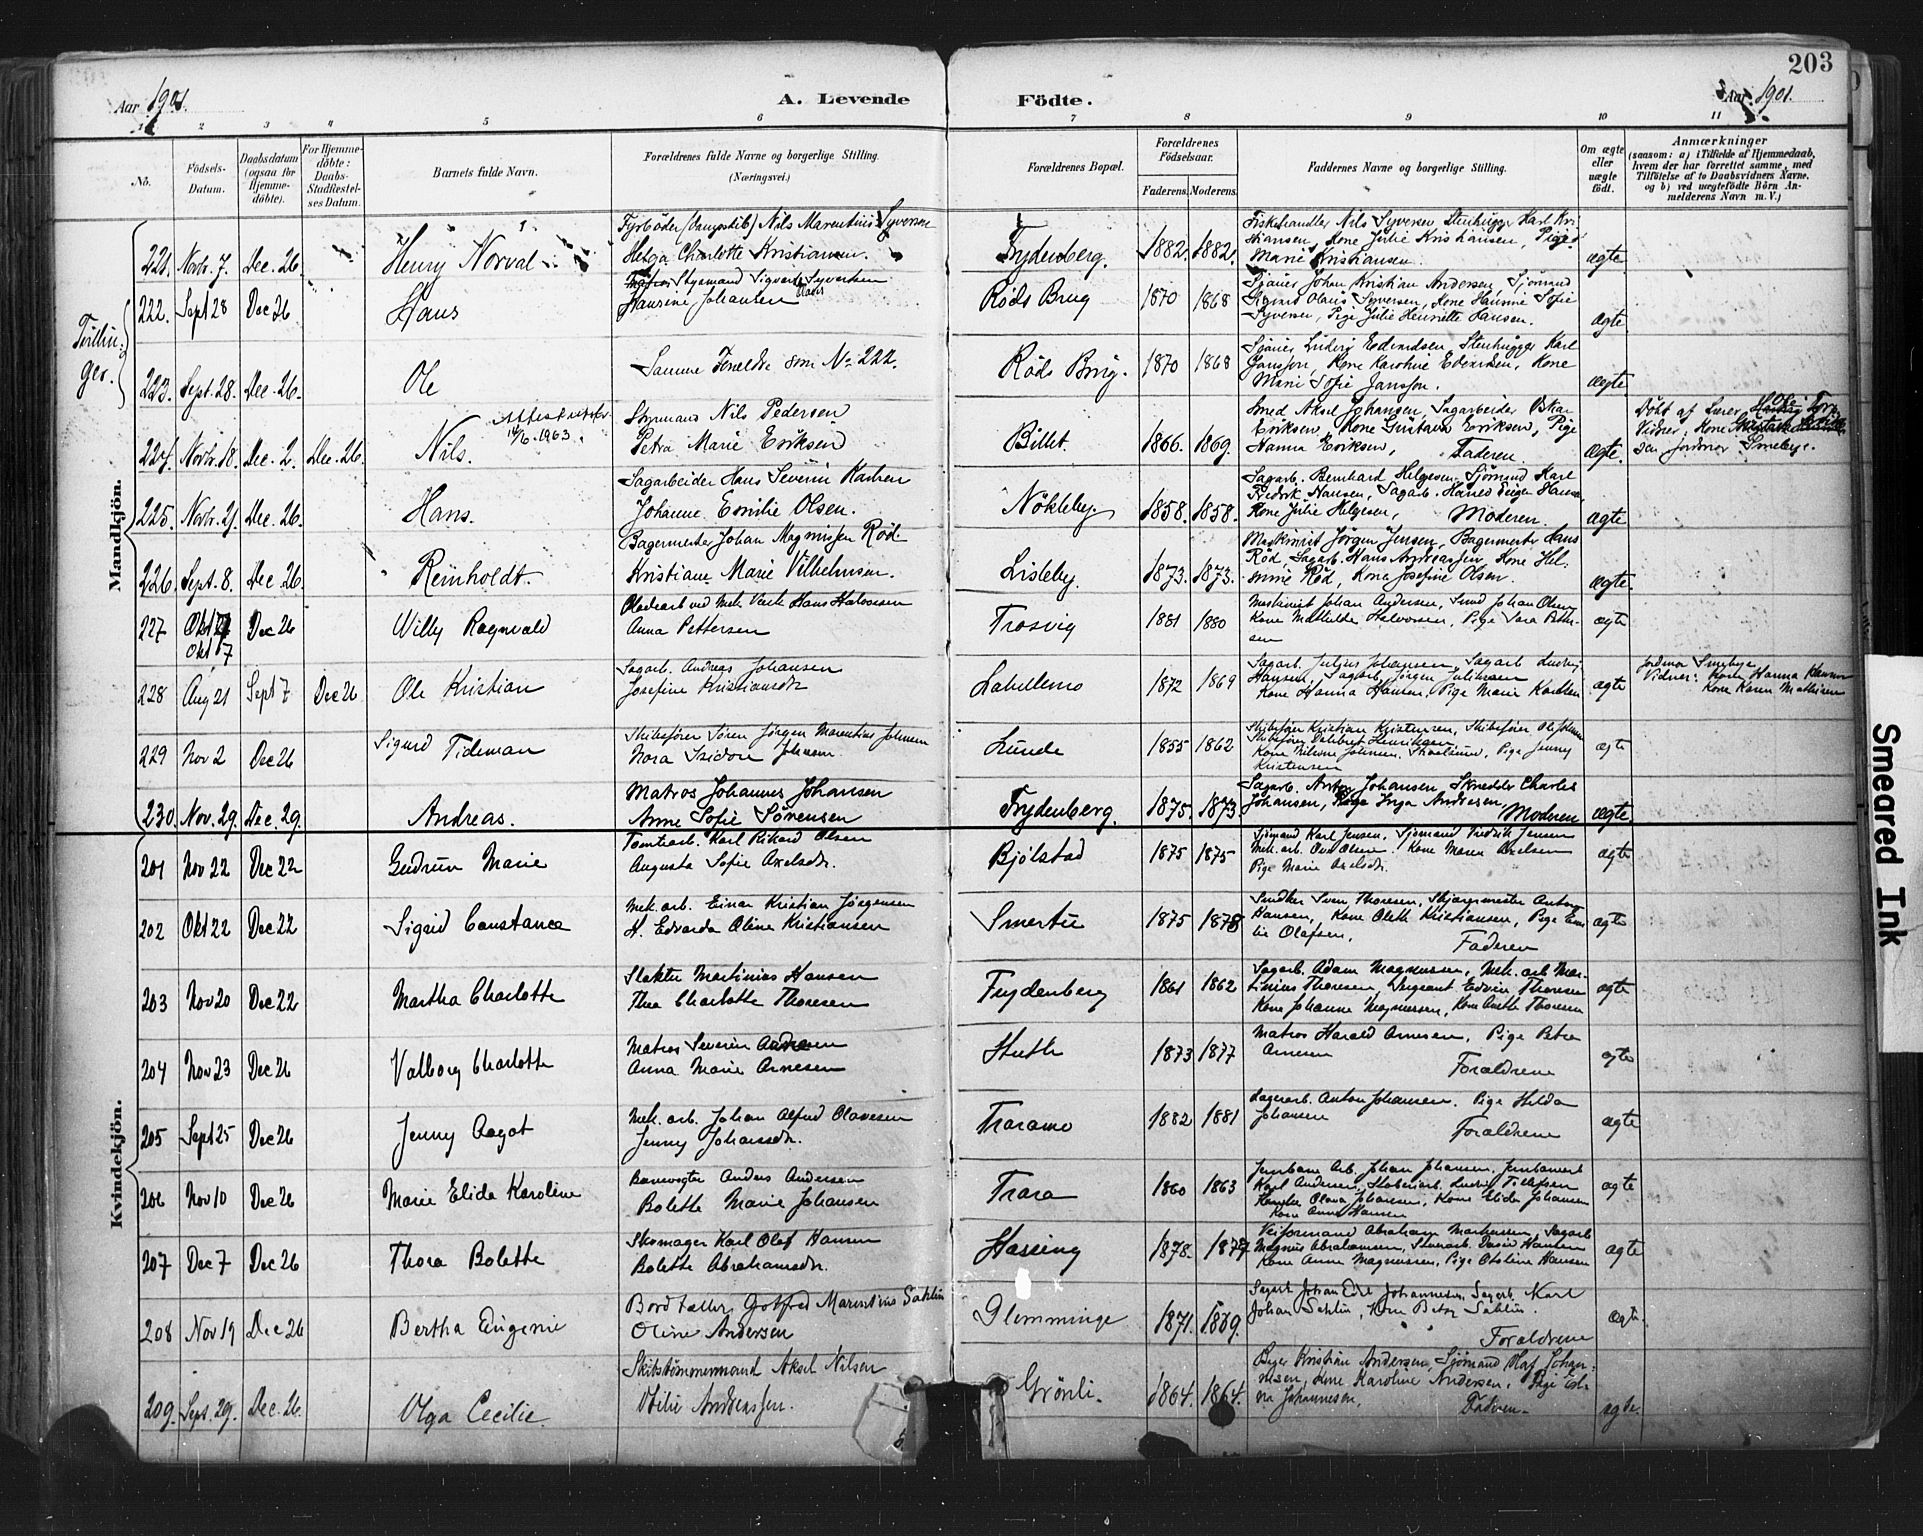 203
Aar 1901.
A. Levende Födte.
Aar 1901.
1 2 3 4 5 6 7 8 9 10 11
No.
Födsels-Datum.
Daabsdatum (ogsaa for Hjemme-döbte).
For Hjemme-döbte: Daabs-Stadfæstel-ses Datum.
Barnets fulde Navn.
Forældrenes fulde Navne og borgerlige Stilling. (Næringsvei.)
Forældrenes Bopæl.
Forældrenes Födselsaar.
Faderens. Moderens.
Faddernes Navne og borgerlige Stilling.
Om ægte eller uægte födt.
Anmærkninger
(saasom: a) i Tilfælde af Hjemmedaab, hvem der har forrettet samme, med Tilföielse af to Daabsvidners Navne, og b) ved uægtefödte Börn Anmelderens Navn m. V.)
Mandkjön.
Tvillinger.
221. Novbr. 7. Dec. 26. Henry Norval Nils Marentius Syversen
Helga Charlotte Kristiansen. Frydenberg. 1882. 1882. Fiskehandler Nils Syversen Stenhugger Karl Kristiansen, Kone Julie Kristiansen, Pige Marie Kristiansen. ægte.
222. Sept 28 Dec 26 Hans Styrmand Sigvart Syvertsen
Haurine Johansen Röds Brug 1870 1868 Sjauer Johan Kristian Andersen, Sjömand Olaus Syversen, Kone Haurine Sofie Syversen, Pige Julie Henriette Hansen. ægte
223. Sept. 28. Dec. 26. Ole Samme Forældre som No 222. Röds Brug. 1870 1868 Sjauer Ludvig Edvardsen, Stenhugger Karl Jansson, Kone Karoline Edvardsen, Kone Marie Sofie Jansson. ægte
224. Novbr. 18. Dec. 2. Dec. 26. Nils. 14/6.1963. Sömand Nils Pedersen
Petra Marie Eriksen Billet. 1866. 1869. Smed Aksel Johansen, Sagarbeider Oskar Eriksen, Kone Gustava Eriksen, Pige Hanna Eriksen, Faderen. ægte. Döbt af Lærer
Vidner, Kone
Jordmor Smebye.
225. Novbr. 21. Dec. 26. Hans. Sagarbeider Hans Severin Hansen
Johanne Emilie Olsen. Nökleby. 1858. 1858. Sagarb. Bernhard Helgesen, Sjömand Karl Fredrik Hansen, Sagarb. Kone Julie Helgesen, Moderen. ægte
226. Sept. 8. Dec. 26. Reinholdt. Bagermester Johan Magnissen Röd.
Kristiane Marie Vilhelmsen. Lisleby. 1873. 1873. Maskinist Jörgen Jensen, Bagermester Hans Röd, Sagarb. Hans Andreassen, Kone Helmine Röd, Kone Josefine Olsen. ægte.
227 Okt 7 Dec 26 Willy Ragnvald Hans Halvorsen
Okt 7 Anna Pettersen Trosvig 1881 1880 Maskinist Johan Andersen, Smed Johan Olsen, Kone Mathilde Halvorsen, Pige Sara Pettersen ægte
228 Aug 21 Sept 7 Dec 26 Ole Kristian Sagarb. Andreas Johansen
Josefine Kristiansdr 1872 1869 Sagarb. Julius Johansen, Sagarb Ludvig Hansen, Sagarb Jörgen Julinesen, Kone Hanna Hansen, Pige Marie Karlsen ægte Jordmor Smebye
Vidner: Kone Hanna Hansen
Kone Karen Mathisen
229 Nov 2 Dec 26 Sigurd Tideman Skibsförer Sören Jörgen Marentius Johnsen
Nora Isidore Johnsen Lunde 1855 1862 Skibsförer Kristian Kristensen, Skibsförer Ole Johnsen Skibsförer Henriksen Pige Jenny Kristensen ægte
230. Nov. 29. Dec. 29. Andreas. Matros Johannes Johansen
Anne Sofie Sörensen Frydenberg. 1875. 1873. Sagarb. Anton Johansen, Skrædder Charles Johansen, Inga Andresen, Moderen ægte
Kvindekjön.
201 Nov 22 Dec 22 Gudrun Marie Tomtearb. Karl Rikard Olsen
Augusta Sofie Axelsdr. Bjölstad 1875 1875 Sjömand Karl Jensen, Sjömand Fredrik Jensen Mek. arb. Kone Maren Axelsen Pige Marie Axelsdr. ægte
202 Okt 22 Dec 22 Sigrid Constance Mek. arb. Einar Kristian Jörgensen
H. Edvarda Oline Kristiansen Smertu 1875 1878 Snedker Sven Thoresen, Anton Hansen, Kone Oleth Kristiansen, Pige Emilie Olafsen, Faderen ægte
203 Nov 20 Dec 22 Martha Charlotte Slakter Martinius Hansen
Thea Charlotte Thoresen Frydenberg 1861 1862 Sagarb. Adam Magnussen, Mek. arb Martinius Thoresen, Sergeant Edvin Thoresen Kone Johanne Magnussen, Kone Anette Thoresen ægte
204 Nov 23 Dec 26 Valborg Charlotte Matros Severin
Anna Marie Arnesen 1873 1877 Matros Harald Arnesen, Pige Petra Arnesen Forældrene ægte
205 Sept 25 Dec 26 Jenny Aagot Mek. arb. Johan Alfred Olavesen
Jenny Johansdr. Traramo 1882 1881 Lagerarb. Anton Johansen. Pige Hilda Johansen Forældrene ægte
206 Nov 10 Dec 26 Marie Elida Karoline Banevogter Anders Andersen
Bolette Marie Johansen Trara 1860 1863 Jernbane Arb. Johan Johansen, Karl Andersen, Ludvig Tollefsen Olava Johansen, Kone Elida Johansen Kone Anna Hansen ægte
207 Dec 7 Dec 26 Thora Bolette Skomager Karl Olaf Hansen
Bolette Abrahamsdr. Hassing 1878. 1877 Veiformand Abraham Martinsen, Sagarb Magnus Abrahamsen, David Hansen Kone Anna Magnussen, Pige Otoline Hansen ægte
208 Nov 19 Dec 26 Bertha Eugenie Bordtaller Gotfred Marentius Sahlin
Oline Andersen Glemminge 1871. 1869. Sagarb Johan Edv. Johannesen, Sagarb. Karl Johan Sahlin, Kone Sahlin. Forældrene ægte
209. Sept. 29. Dec. 26. Olga Cecilie. Skibstömmermand Aksel Nilsen
Otilie Andreassen. Grönli. 1864. 1864. Kristian Andersen, Sjömand Olaf Johannesen, Kone Karoline Andersen, Pige Johannesen, Faderen. ægte.
Smeared Ink